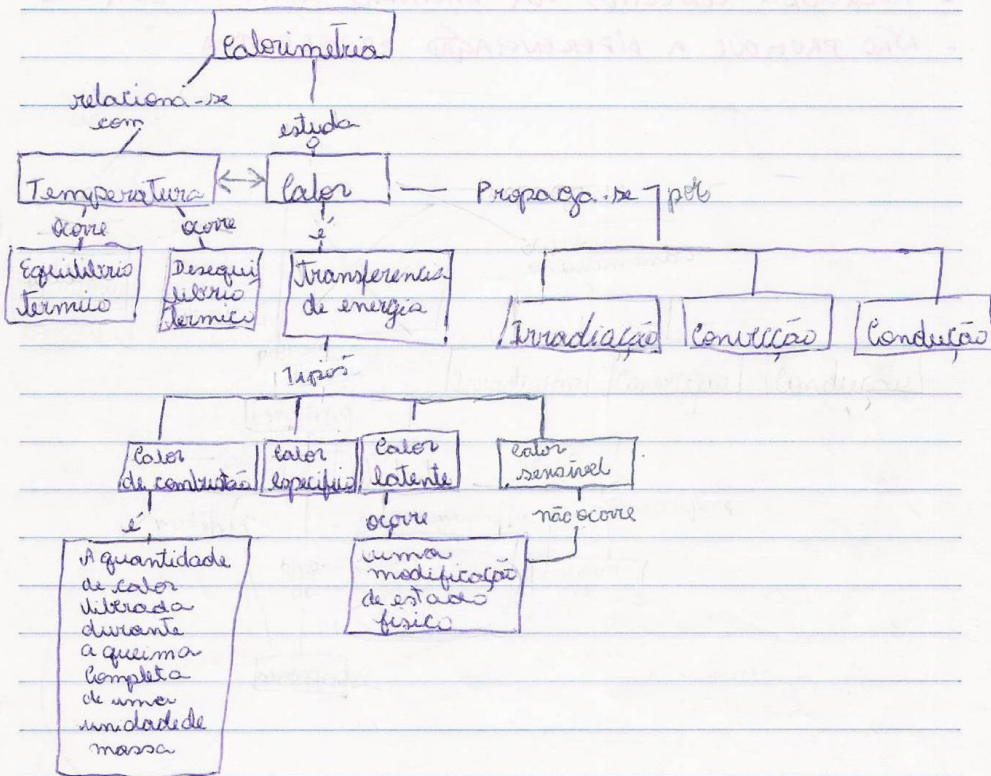 - NÃO PROMOVE A DIFERENCIAÇÃO
Calorimetria
relaciona-se
com
estuda
o
Temperatura
Calor
Propaga-se
por
ocorre
ocorre
é
Equilíbrio
termico
Desequi
líbrio
termico
transferencia
de energia
Irradiação
Convecção
Condução
Tipos
Calor
de combustão
Calor
especifico
Calor
latente
calor
sensível
é
ocorre
não ocorre
A quantidade
de calor
liberada
durante
a queima
completa
de uma
unidade de
massa
uma
modificação
de estado
físico